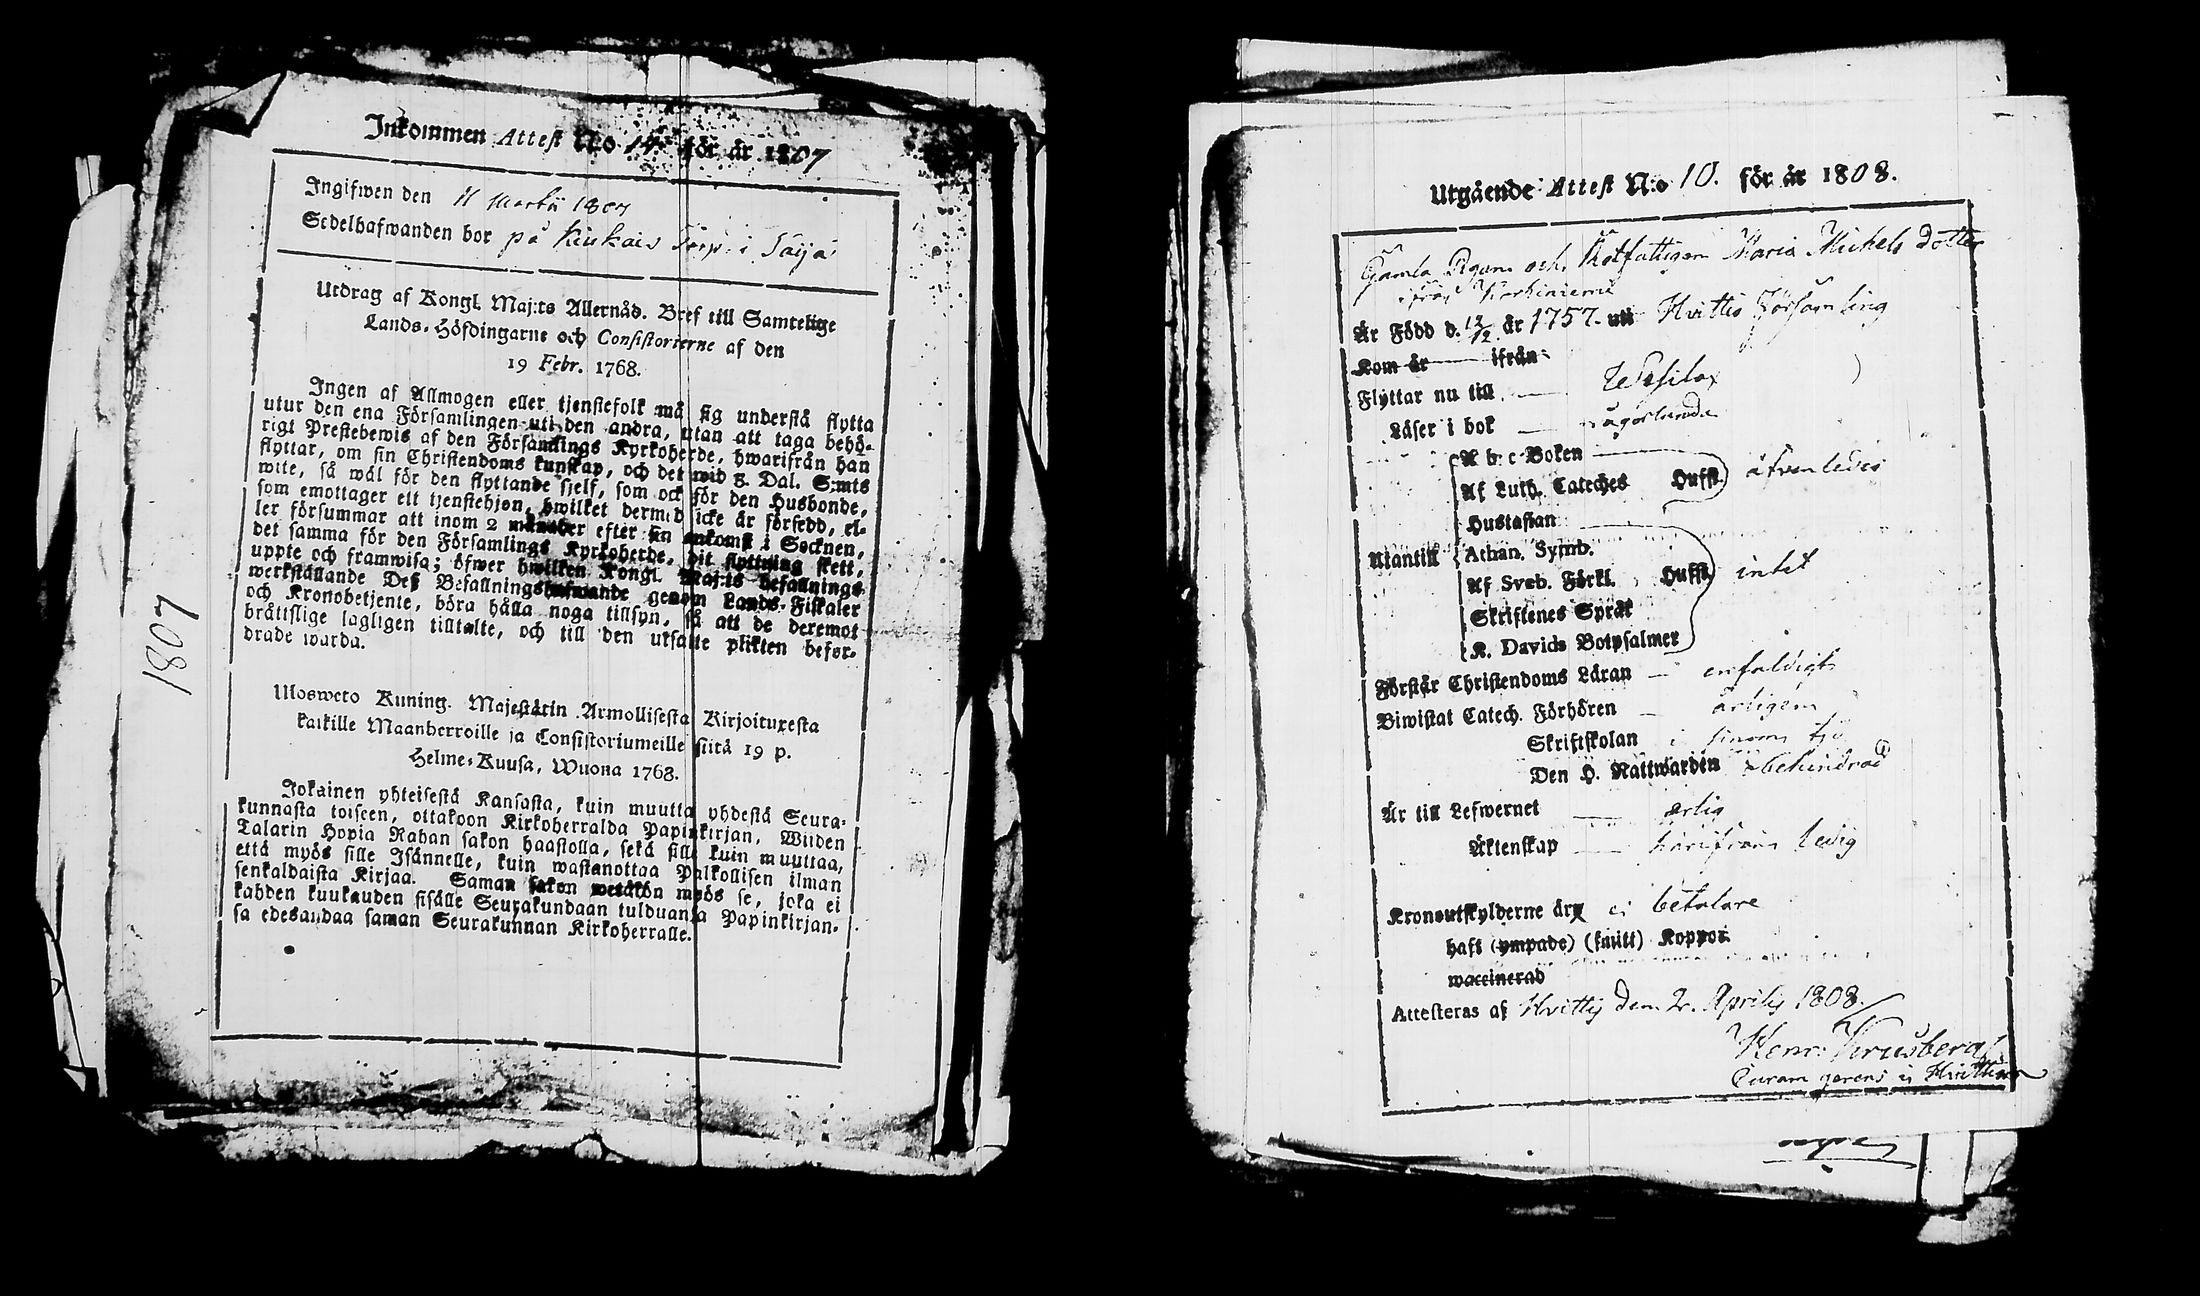 Inkommen Attest No 14 för år 1807
Ingifwen den 11 Martii 1807
Sedelhafwanden bor på Kiukais Torp i Säijä
Utdrag af Kongl. Maj:ts Allernåd. Bref till Samtelige
Lands-Höfdingarne och Consistorierne af den
19 Febr. 1768.
Ingen af Allmogen eller tjenstefolk må sig understå flytta
utur den ena Församlingen uti den andra, utan att taga behö-
rigt Prestebewis af den Församlings Kyrkoherde, hwarifrån han
flyttar, om sin Christendoms kunskap, och det wid 8. Dal. S:mts
wite, så wäl för den flyttande sjelf, som ock för den Husbonde,
som emottager ett tjenstehjon, hwilket dermed icke är försedd, el-
ler försummar att inom 2 månader efter sin ankomst i Socknen,
det samma för den Församlings Kyrkoherde, dit flyttning skett,
uppte och framwisa; öfwer hwilken Kongl. Maj:ts befallnings
werkställande Deß Befallningshafwande genom Lands-Fiskaler
och Kronobetjente, böra hålla noga tillsyn, så att de deremot
bråttslige lagligen tilltalte, och till den utsatte plikten befor-
drade warda.
1807
Ulosweto Kuning. Majestätin Armollisesta Kirjoituxesta
kaikille Maanherroille ja Consistoriumeille siitä 19 p.
Helme-Kuusa, Wuona 1768.
Jokainen yhteisestä Kansasta, kuin muutta yhdestä Seura-
kunnasta toiseen, ottakoon Kirkoherralda Papinkirjan, Wiiden
Talarin Hopia Rahan sakon haastolla, sekä sille kuin muuttaa,
että myös sille Isännelle, kuin wastanottaa Palkollisen ilman
senkaldaista Kirjaa. Saman sakon wetäkön myös se, joka ei
kahden kuukauden sisälle Seurakundaan tulduansa Papinkirjan-
sa edesandaa saman Seurakunnan Kirkoherralle.
Utgående Attest N:o 10. för år 1808.
Gamla Pigan och Rotfattigen Maria Michels dotter
ifrån Karhiniemi
Är Född d. 12/12 år 1757. uti Hvittis Församling
Kom år ifrån
Flyttar nu till Wesilax
Läser i bok någorlunda
A b c-Boken
Af Luth. Cateches Hufft. äfvenledes
Hustaflan
Utantill Athan. Symb.
Af Sveb. Förkl. Hufft. intet
Skriftenes Språk
K. Davids Botpsalmer
Förstår Christendoms Läran enfaldigt
Biwistat Catech. Förhören årligen
Skriftskolan i sinom tid
Den H. Nattwarden obehindrad
Är till Lefwernet ärlig
Äktenskap härifrån ledig
Kronoutskylderne äro ei betalare
haft (ympade) (smitt) Koppor
waccinerad
Attesteras af Hvittis dem 2. Aprilis 1808.
Henr: Krusberg
Curam gerens in Hvittis